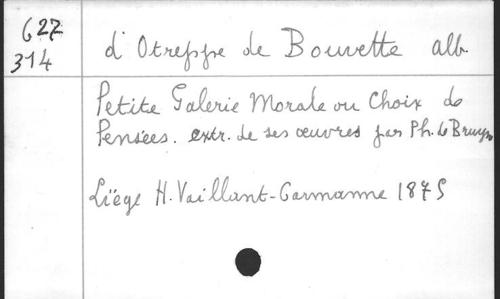 627
314
d'Otreppe de Bouvette alb.
Petite Galerie Morale ou Choix de
Pensées. extr. de ses œuvres par Ph. le Bruyn
Liège H. Vaillant-Carmanne 1875